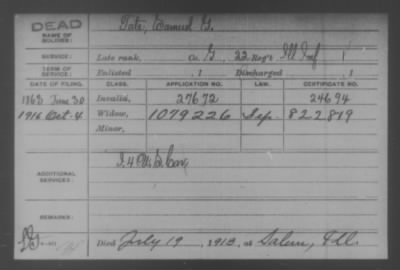 DEAD
NAME OF SOLDIER: Tate, Samuel G.
SERVICE: Late rank, Co. G, 22 Reg't Ill Inf
TERM OF SERVICE: Enlisted , 1 Discharged , 1
DATE OF FILING. CLASS. APPLICATION NO. LAW. CERTIFICATE NO.
1863 June 30 Invalid, 27672 24694
1916 Oct. 4 Widow, 1079226 Sep. 822819
Minor,
ADDITIONAL SERVICES: I. 4 U.S. Cav
REMARKS:
Died July 19, 1913, at Salem, Ill.